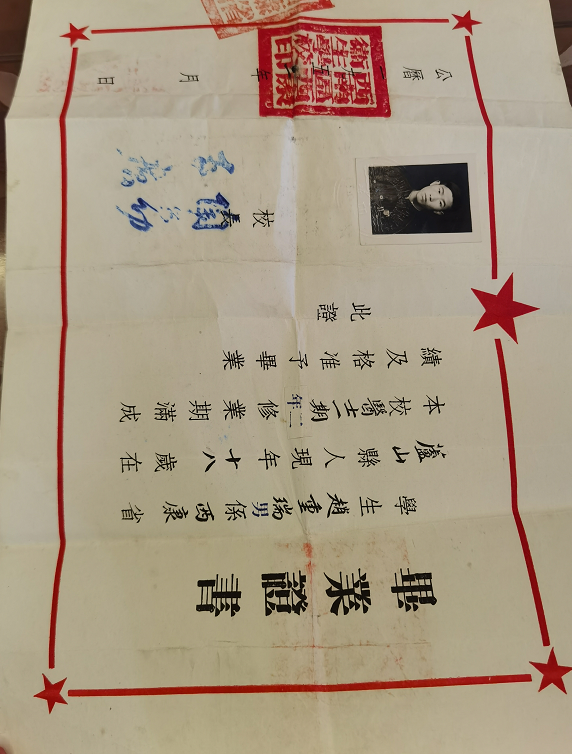 畢業證書
學生趙重瑞男係西康省
蘆山縣人現年十八歲在
本校醫士一期二年修業期滿成
績及格准予畢業
此證
校長
公曆一九五年月日